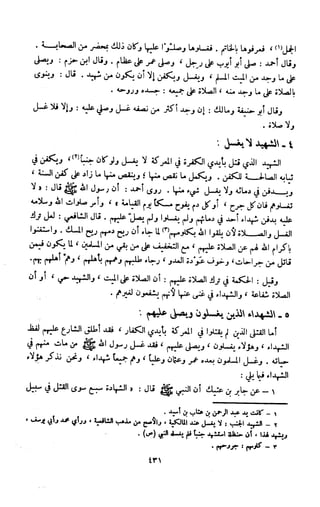 الجمل(١) ، فعرفوها بالخاتم . فغسلوها وصلَّوا عليها وكان ذلك بمحضر من الصحابة .
وقال أحمد : صلى أبو أيوب على رجل ، وصلى عمر على عظام . وقال ابن حزم : ويصلى
على ما وجد من الميت المسلم ، ويغسل ويكفن إلا أن يكون من شهيد . قال : وينوى
بالصلاة على ما وجد منه ، الصلاة على جميعه : جسده وروحه .
وقال أبو حنيفة ومالك : إن وجد أكثر من نصفه غسل وصلي عليه : وإلا فلا غسل
ولا صلاة .
٤ - الشهيد لا يغسل :
الشهيد الذي قتل بأيدي الكفرة في المعركة لا يغسل ولو كان جنباً(٢) ، ويكفن في
ثيابه الصالحة للكفن . ويكمل ما نقص منها ؛ وينقص منها ما زاد على كفن السنة ،
ويدفن في دمائه ولا يغسل شيء منها . روى أحمد : أن رسول الله ﷺ قال : ولا
تغسلوهم فإن كل جرح ، أو كل دم يفوح مسكاً يوم القيامة ، ، وأمر صلوات الله وسلامه
عليه بدفن شهداء أحد في دمائهم ولم يغسلوا ولم يصلّ عليهم . قال الشافعي : لعل ترك
الغسل والصلاة لأن يلقوا الله بكلومهم(٣) لما جاء أن ريح دمهم ريح المسك . واستغنوا
بإكرام الله لهم عن الصلاة عليهم ، مع التخفيف على من بقي من المسلمين ، لما يكون فيمن
قاتل من جراحات، وخوف عودة العدو ، رجاء طلبهم وهمهم بأهلهم ، وهم أهلهم بهم.
وقيل : الحكمة في ترك الصلاة عليهم : أن الصلاة على الميت ، والشهيد حي ، أو أن
الصلاة شفاعة ، والشهداء في غنى عنها لأنهم يشفعون لغيرهم .
٥ - الشهداء الذين يغسلون ويصلى عليهم :
أما القتلى الذين لم يقتلوا في المعركة بأيدي الكفار ، فقد أطلق الشارع عليهم لفظ
الشهداء ، وهؤلاء يغسلون ، ويصلى عليهم ، فقد غسل رسول الله ﷺ من مات منهم في
حياته . وغسل المسلمون بعده عمر وعثمان وعلياً ، وهم جميعاً شهداء ، ونحن نذكر هؤلاء
الشهداء فيما يلي :
١ - عن جابر بن عتيك أن النبي ﷺ قال : « الشهادة سبع سوى القتل في سبيل
١ - كانت يد عبد الرحمن بن عتاب بن أسيد .
٢ - الشهيد الجنب : لا يغسل عند المالكية ، والأصح من مذهب الشافعية ، ورأي محمد وأبي يوسف ،
ويشهد لهذا ، أن حنظلة استشهد جنباً فلم يغسله النبي (ص) .
٣ - كلومهم : جروحهم .
٤٣١